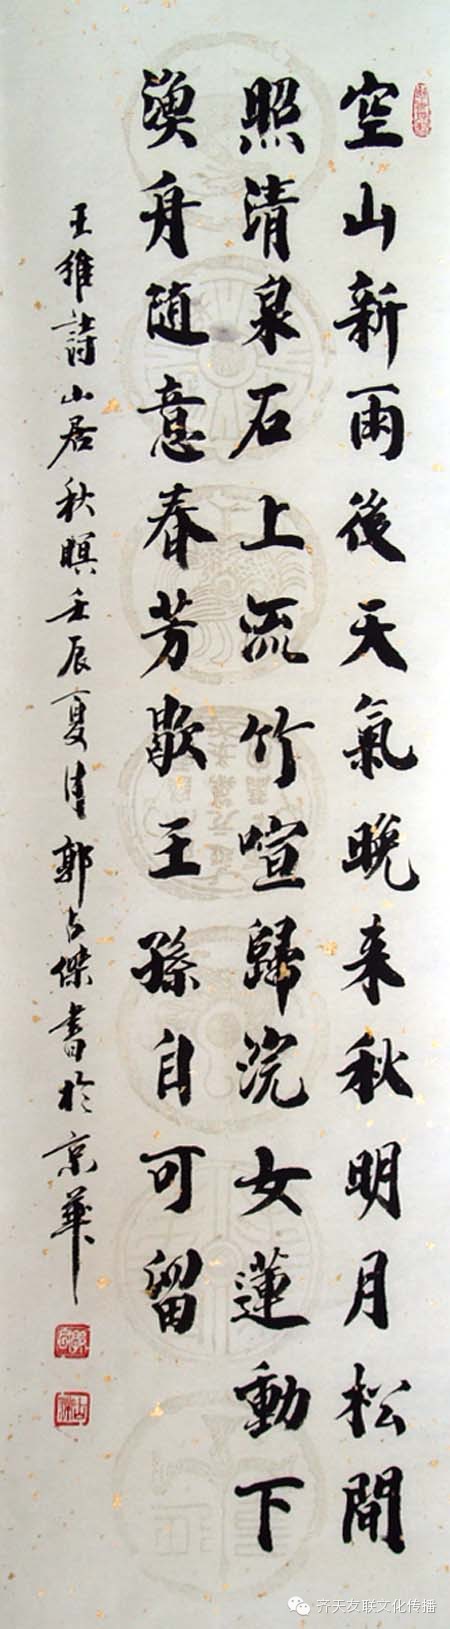 空山新雨後天氣晚来秋明月松間
照清泉石上流竹喧歸浣女蓮動下
漁舟随意春芳歇王孫自可留
王維詩山居秋暝壬辰夏月郭占傑書於京華
齐天友联文化传播